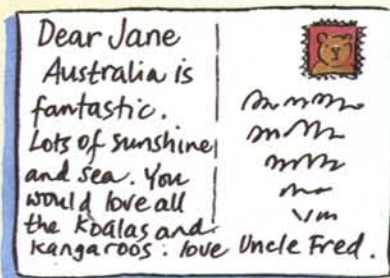 Dear Jane
Australia is
fantastic.
Lots of sunshine
and sea. You
would love all
the koalas and
kangaroos. love Uncle Fred.